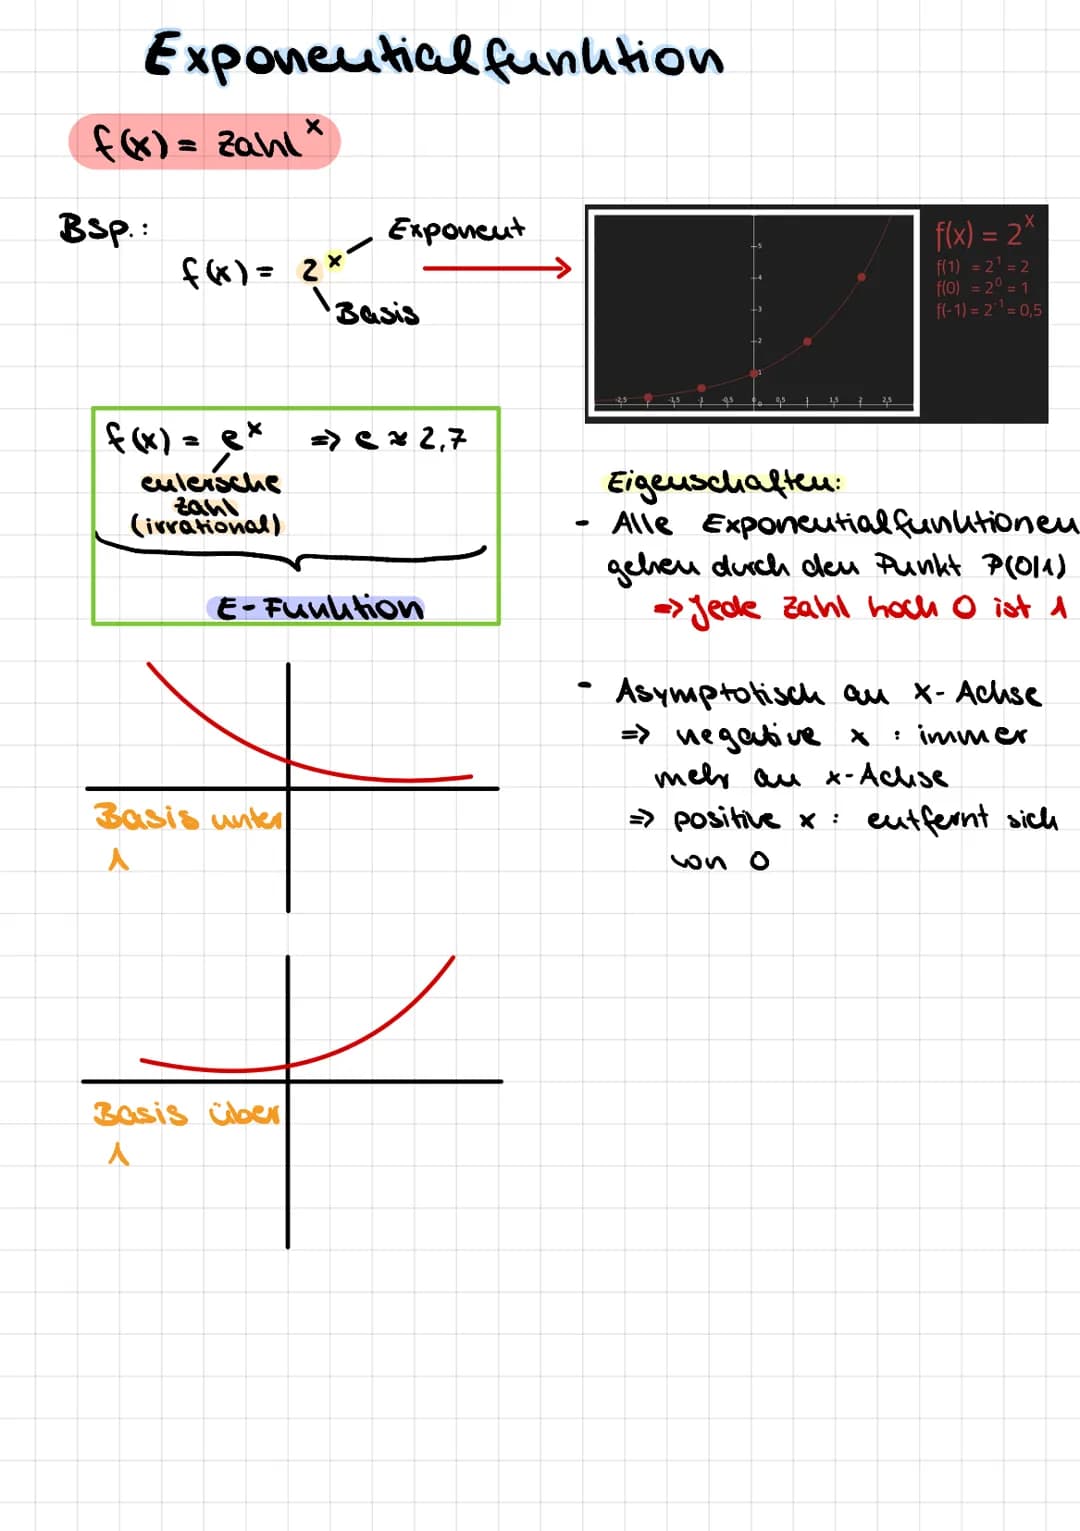 Exponentialfunktion
f(x) = Zahl^x
Bsp.:
Exponent
f(x) = 2^x
Basis
f(x) = 2^x
f(1) = 2^1 = 2
f(0) = 2^0 = 1
f(-1) = 2^-1 = 0,5
5
4
3
2
1
0
-2,5 -1,5 -1 -0,5 0 0,5 1 1,5 2 2,5
f(x) = e^x => e ≈ 2,7
eulersche
Zahl
(irrational)
E-Funktion
Eigenschaften:
- Alle Exponentialfunktionen
gehen durch den Punkt P(0|1)
=> Jede Zahl hoch 0 ist 1
- Asymptotisch an x-Achse
=> negative x : immer
mehr an x-Achse
=> positive x : entfernt sich
von 0
Basis unter
1
Basis über
1